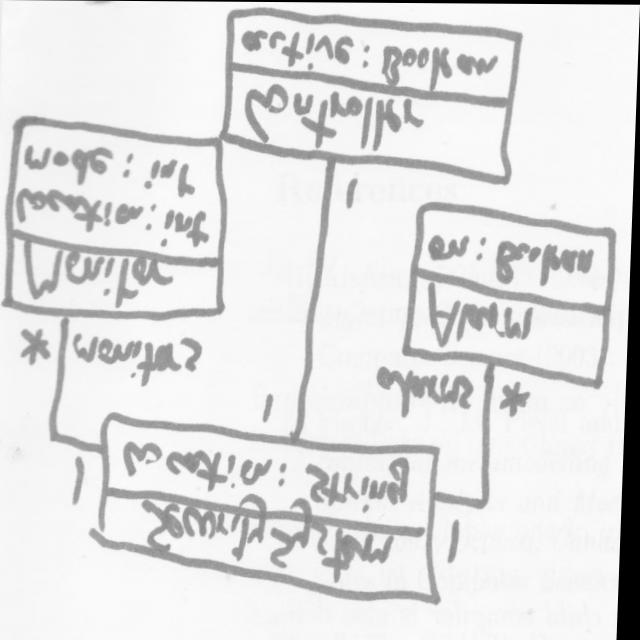 Security System
location: String
1
1
1
*
monitors
alarms
*
Monitor
location: int
mode: int
Alarm
on: Boolean
1
Controller
active: Boolean